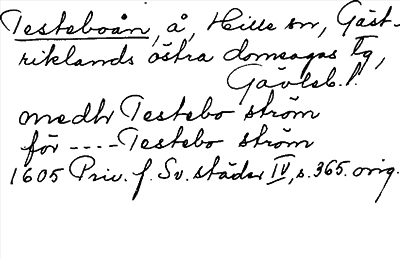 Testeboån, å, Hille sn, Gäst-
riklands östra domsagas tg,
Gävleb. l.
medh Testebo ström
för ---- Testebo ström
1605 Priv. f. Sv. städer IV, s. 365. orig.